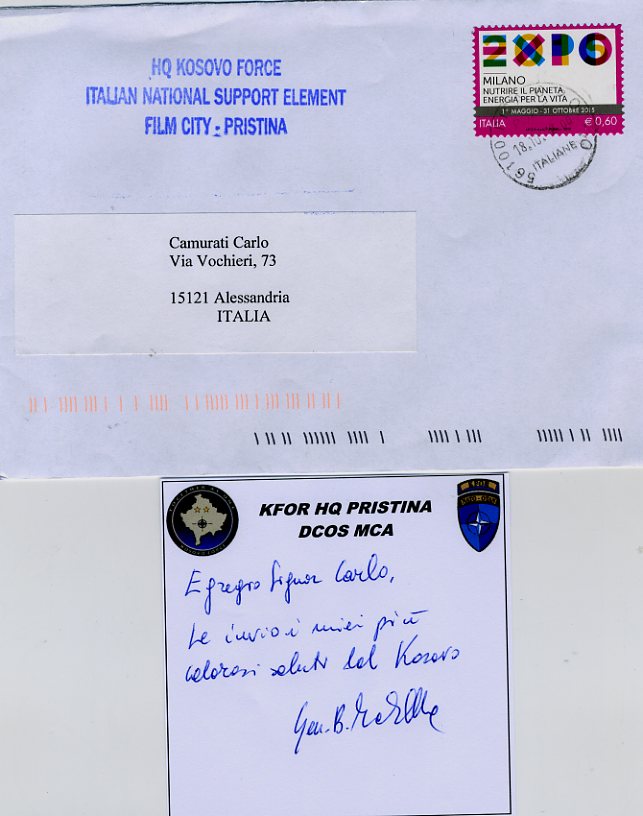 HQ KOSOVO FORCE
ITALIAN NATIONAL SUPPORT ELEMENT
FILM CITY - PRISTINA
EXPO
MILANO
NUTRIRE IL PIANETA
ENERGIA PER LA VITA
1° MAGGIO - 31 OTTOBRE 2015
ITALIA € 0,60
56100
ITALIANE
Camurati Carlo
Via Vochieri, 73
15121 Alessandria
ITALIA
KFOR HQ PRISTINA
DCOS MCA
Egregio Signor Carlo,
Le invio i miei più
calorosi saluti dal Kosovo
Gen. B.